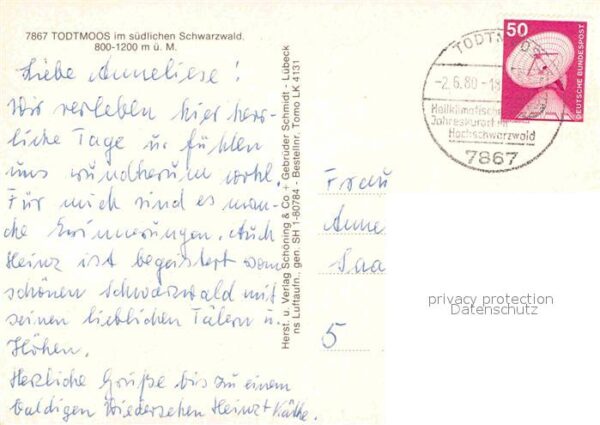 7867 TODTMOOS im südlichen Schwarzwald.
800-1200 m ü. M.
Liebe Anneliese!
Wir verleben hier herr-
liche Tage u. fühlen
uns rundherum wohl.
Für mich sind es man-
che Erinnerungen. Auch
Heinz ist begeistert vom
schönen Schwarzwald mit
seinen lieblichen Tälern u.
Höhen.
Herzliche Grüße bis zu einem
baldigen Wiedersehen Heinz + Käthe.
Herst. u. Verlag Schöning & Co + Gebrüder Schmidt - Lübeck
ns Luftaufn., gen. SH 1-80784 - Bestellnr. Tomo LK 4131
TODTMOOS
-2.6.80-18
Heilklimatischer
Jahreskurort im
Hochschwarzwald
7867
50
DEUTSCHE BUNDESPOST
Frau
Anne
Saa
5
privacy protection
Datenschutz